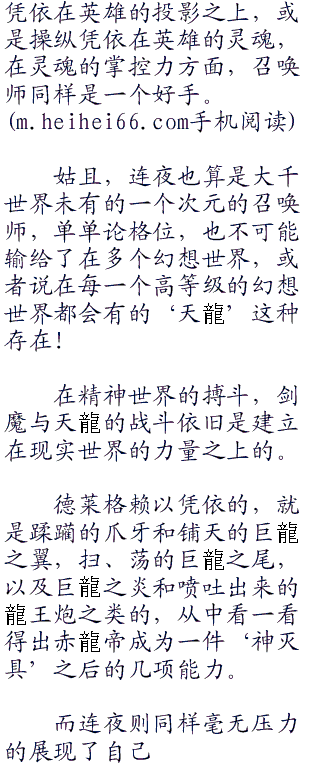 凭依在英雄的投影之上，或
是操纵凭依在英雄的灵魂，
在灵魂的掌控力方面，召唤
师同样是一个好手。
(m.heihei66.com手机阅读)
姑且，连夜也算是大千
世界未有的一个次元的召唤
师，单单论格位，也不可能
输给了在多个幻想世界，或
者说在每一个高等级的幻想
世界都会有的‘天龍’这种
存在！
在精神世界的搏斗，剑
魔与天龍的战斗依旧是建立
在现实世界的力量之上的。
德莱格赖以凭依的，就
是蹂躏的爪牙和铺天的巨龍
之翼，扫、荡的巨龍之尾，
以及巨龍之炎和喷吐出来的
龍王炮之类的，从中看一看
得出赤龍帝成为一件‘神灭
具’之后的几项能力。
而连夜则同样毫无压力
的展现了自己